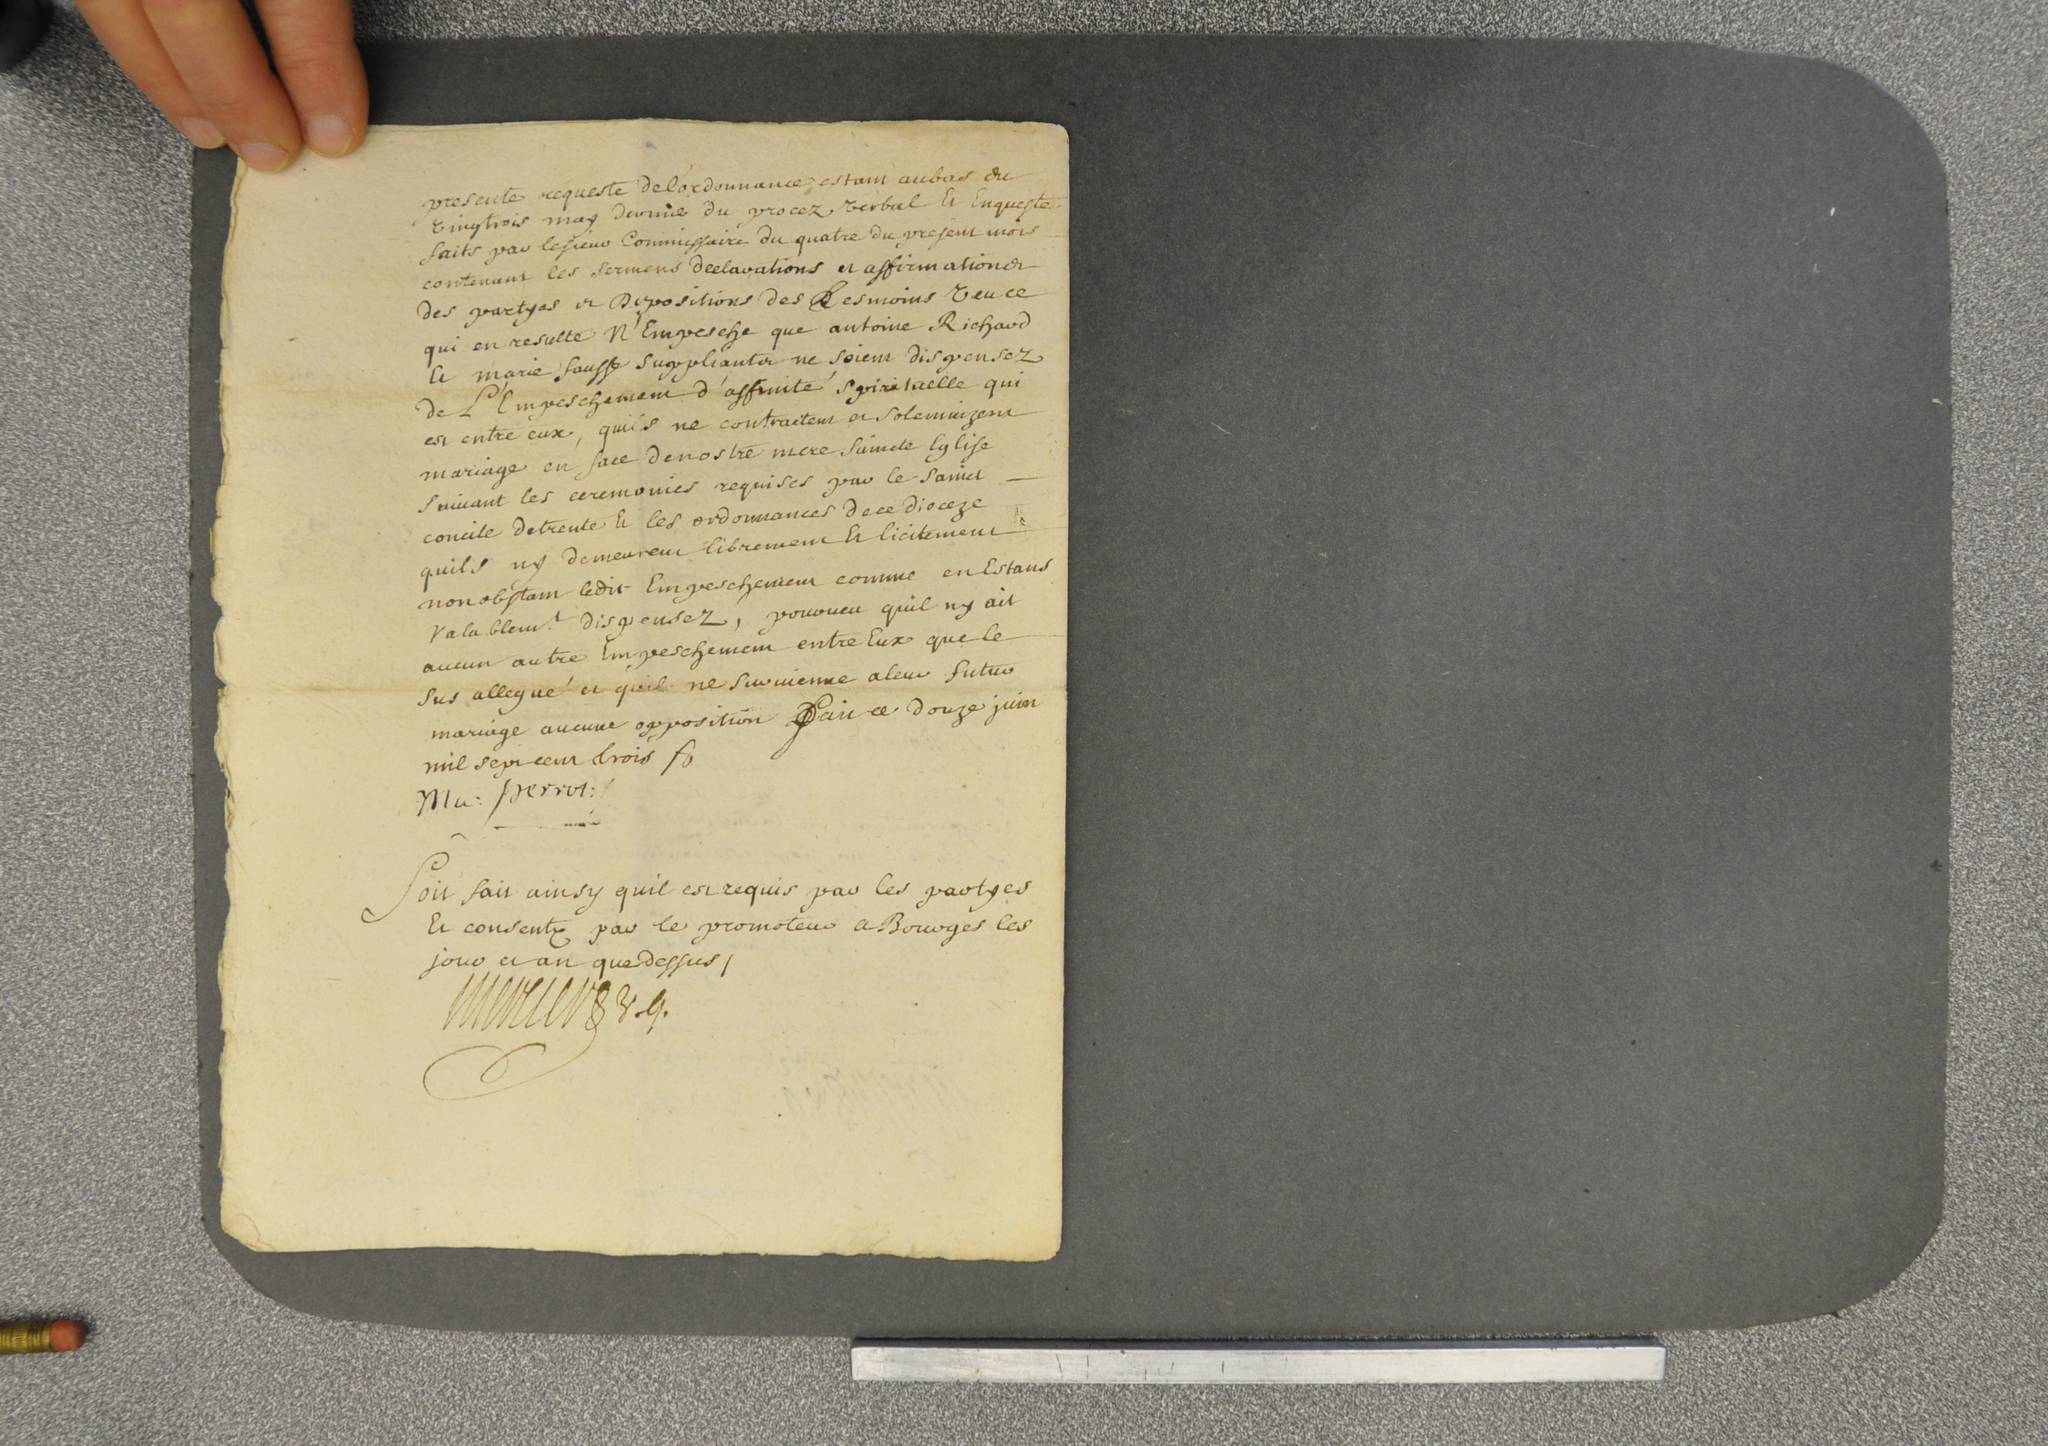 presente requeste de l'ordonnance estant au bas du
vingtrois may dernier du procez verbal et Enqueste
faits par le sieur Commissaire du quatre du present mois
contenant les sermens declarations et affirmations
des partyes et Depositions des tesmoins veu ce
qui en resulte N'Empesche que antoine Richard
et marie sausse suppliants ne soient dispensez
de L'Empeschement d'affinité spirituelle qui
est entre eux, quils ne contractent et solemnizent
mariage en face de nostre mere saincte Eglise
suivant les ceremonies requises par le sainct
concile de trente et les ordonnances de ce dioceze
quils ny demeurent librement et licitement
nonobstant ledit Empeschement comme en Estans
valablemt. dispensez, pourveu quil ny ait
aucun autre Empeschement entre Eux que le
sus allegué et quil ne survienne a leur futur
mariage aucune opposition fait ce douze juin
mil sept cent trois
Perrot
Soit fait ainsy quil est requis par les partyes
et consenty par le promoteur a Bourges les
jour et an que dessus,
mercier v.g.